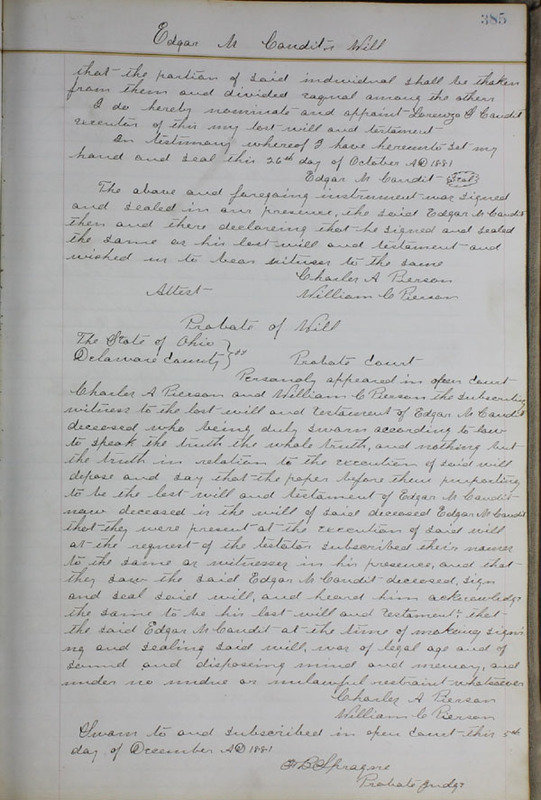 385
Edgar M Condit's Will
that the portion of said individual shall be thaken
from them and divided eaqual among the others
I do hereby nominate and appoint Lorenzo Condit
executor of this my last will and testament
In testimony whereof I have hereunto set my
hand and seal this 26th day of October AD 1881
Edgar M Condit Seal
The above and foregoing instrument was signed
and sealed in our presence, the said Edgar M Condit
then and there declareing that he signed and sealed
the same as his last will and testament and
wished us to bear witness to the same
Charles A Pierson
Attest William C Pierson
Probate of Will
The State of Ohio } ss
Delaware County } Probate Court
Personaly appeared in open Court
Charles A Pierson and William C Pierson the subscribing
witness to the last will and testament of Edgar M Condit
deceased who being duly sworn according to law
to speak the truth the whole truth, and nothing but
the truth in relation to the execution of said will
depose and say that the paper before them purporting
to be the last will and testament of Edgar M Condit
now deceased is the will of said deceased Edgar M Condit
that they were present at the execution of said will
at the request of the testator subscribed their names
to the same as witnesses in his presence, and that
they saw the said Edgar M Condit deceased, sign
and seal said will, and heard him acknowledge
the same to be his last will and testament; that
the said Edgar M Condit at the time of making signi
ng and sealing said will, was of legal age and of
sound and disposeing mind and memory, and
under no undue or unlawful restraint whatsoever
Charles A Pierson
William C Pierson
Sworn to and subscribed in open court this 5th
day of December AD 1881
Sprague
Probate Judge